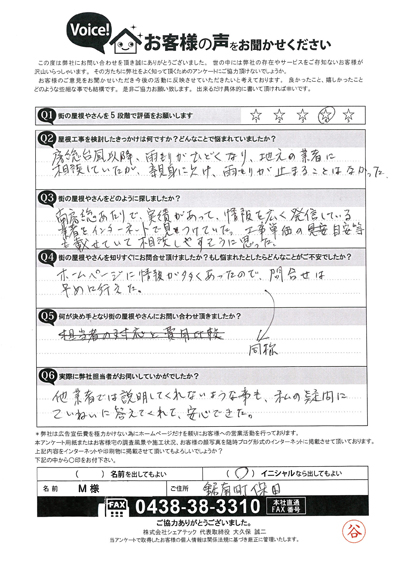 Voice!
お客様の声をお聞かせください
この度は弊社にお問い合わせを頂き誠にありがとうございました。世の中には弊社の存在やサービスをご存知ないお客様が
沢山いらっしゃいます。その方たちに弊社をよく知って頂くためのアンケートにご協力頂けないでしょうか。
お客様のご意見をお聞かせいただき今後の活動に反映させていただきたいと考えております。良かったこと、嬉しかったこと
どのような些細な事でも結構です。是非ご協力お願い致します。出来るだけ具体的に書いて頂ければ幸いです。
Q1 街の屋根やさんを5段階で評価をお願いします
☆ ☆ ☆ ☆ ☆
Q2 屋根工事を検討したきっかけは何ですか？どんなことで悩まれていましたか？
房総台風以降、雨もりがひどくなり、地元の業者に
相談していたが、親身に欠け、雨もりが止まることはなかった。
Q3 街の屋根やさんをどのように探しましたか？
南房総あたりで、実績があって、情報を広く発信している
業者をインターネットで見つけていた。工事単価の目安等
も載せていて相談しやすそうに思った。
Q4 街の屋根やさんを知りすぐにお問合せ頂けましたか？もし悩まれたとしたらどんなことがご不安でしたか？
ホームページに情報が多くあったので、問合せは
早めに行えた。
Q5 何が決め手となり街の屋根やさんにお問い合わせ頂きましたか？
担当者の対応と費用比較
同様
Q6 実際に弊社担当者がお伺いしていかがでしたか？
他業者では説明してくれないような事も、私の疑問に
ていねいに答えてくれて、安心できた。
＊弊社は広告宣伝費を極力かけない為にホームページだけを頼りにお客様への営業活動を行っております。
本アンケート用紙またはお客様宅の調査風景や施工状況、お客様の顔写真を随時ブログ形式のインターネットに掲載させて頂いております。
上記内容をインターネットや印刷物に掲載させて頂いてもよろしいでしょうか？
下記の中から○印をお付下さい。
（　）名前を出してもよい （○）イニシャルなら出してもよい
名前 M様 ご住所 鋸南町保田
FAX 0438-38-3310 本社直通 FAX番号
ご協力ありがとうございました。
株式会社シェアテック 代表取締役 大久保 誠二
当アンケートで取得したお客様の個人情報は関係法規に基づき厳正に管理いたします。
谷